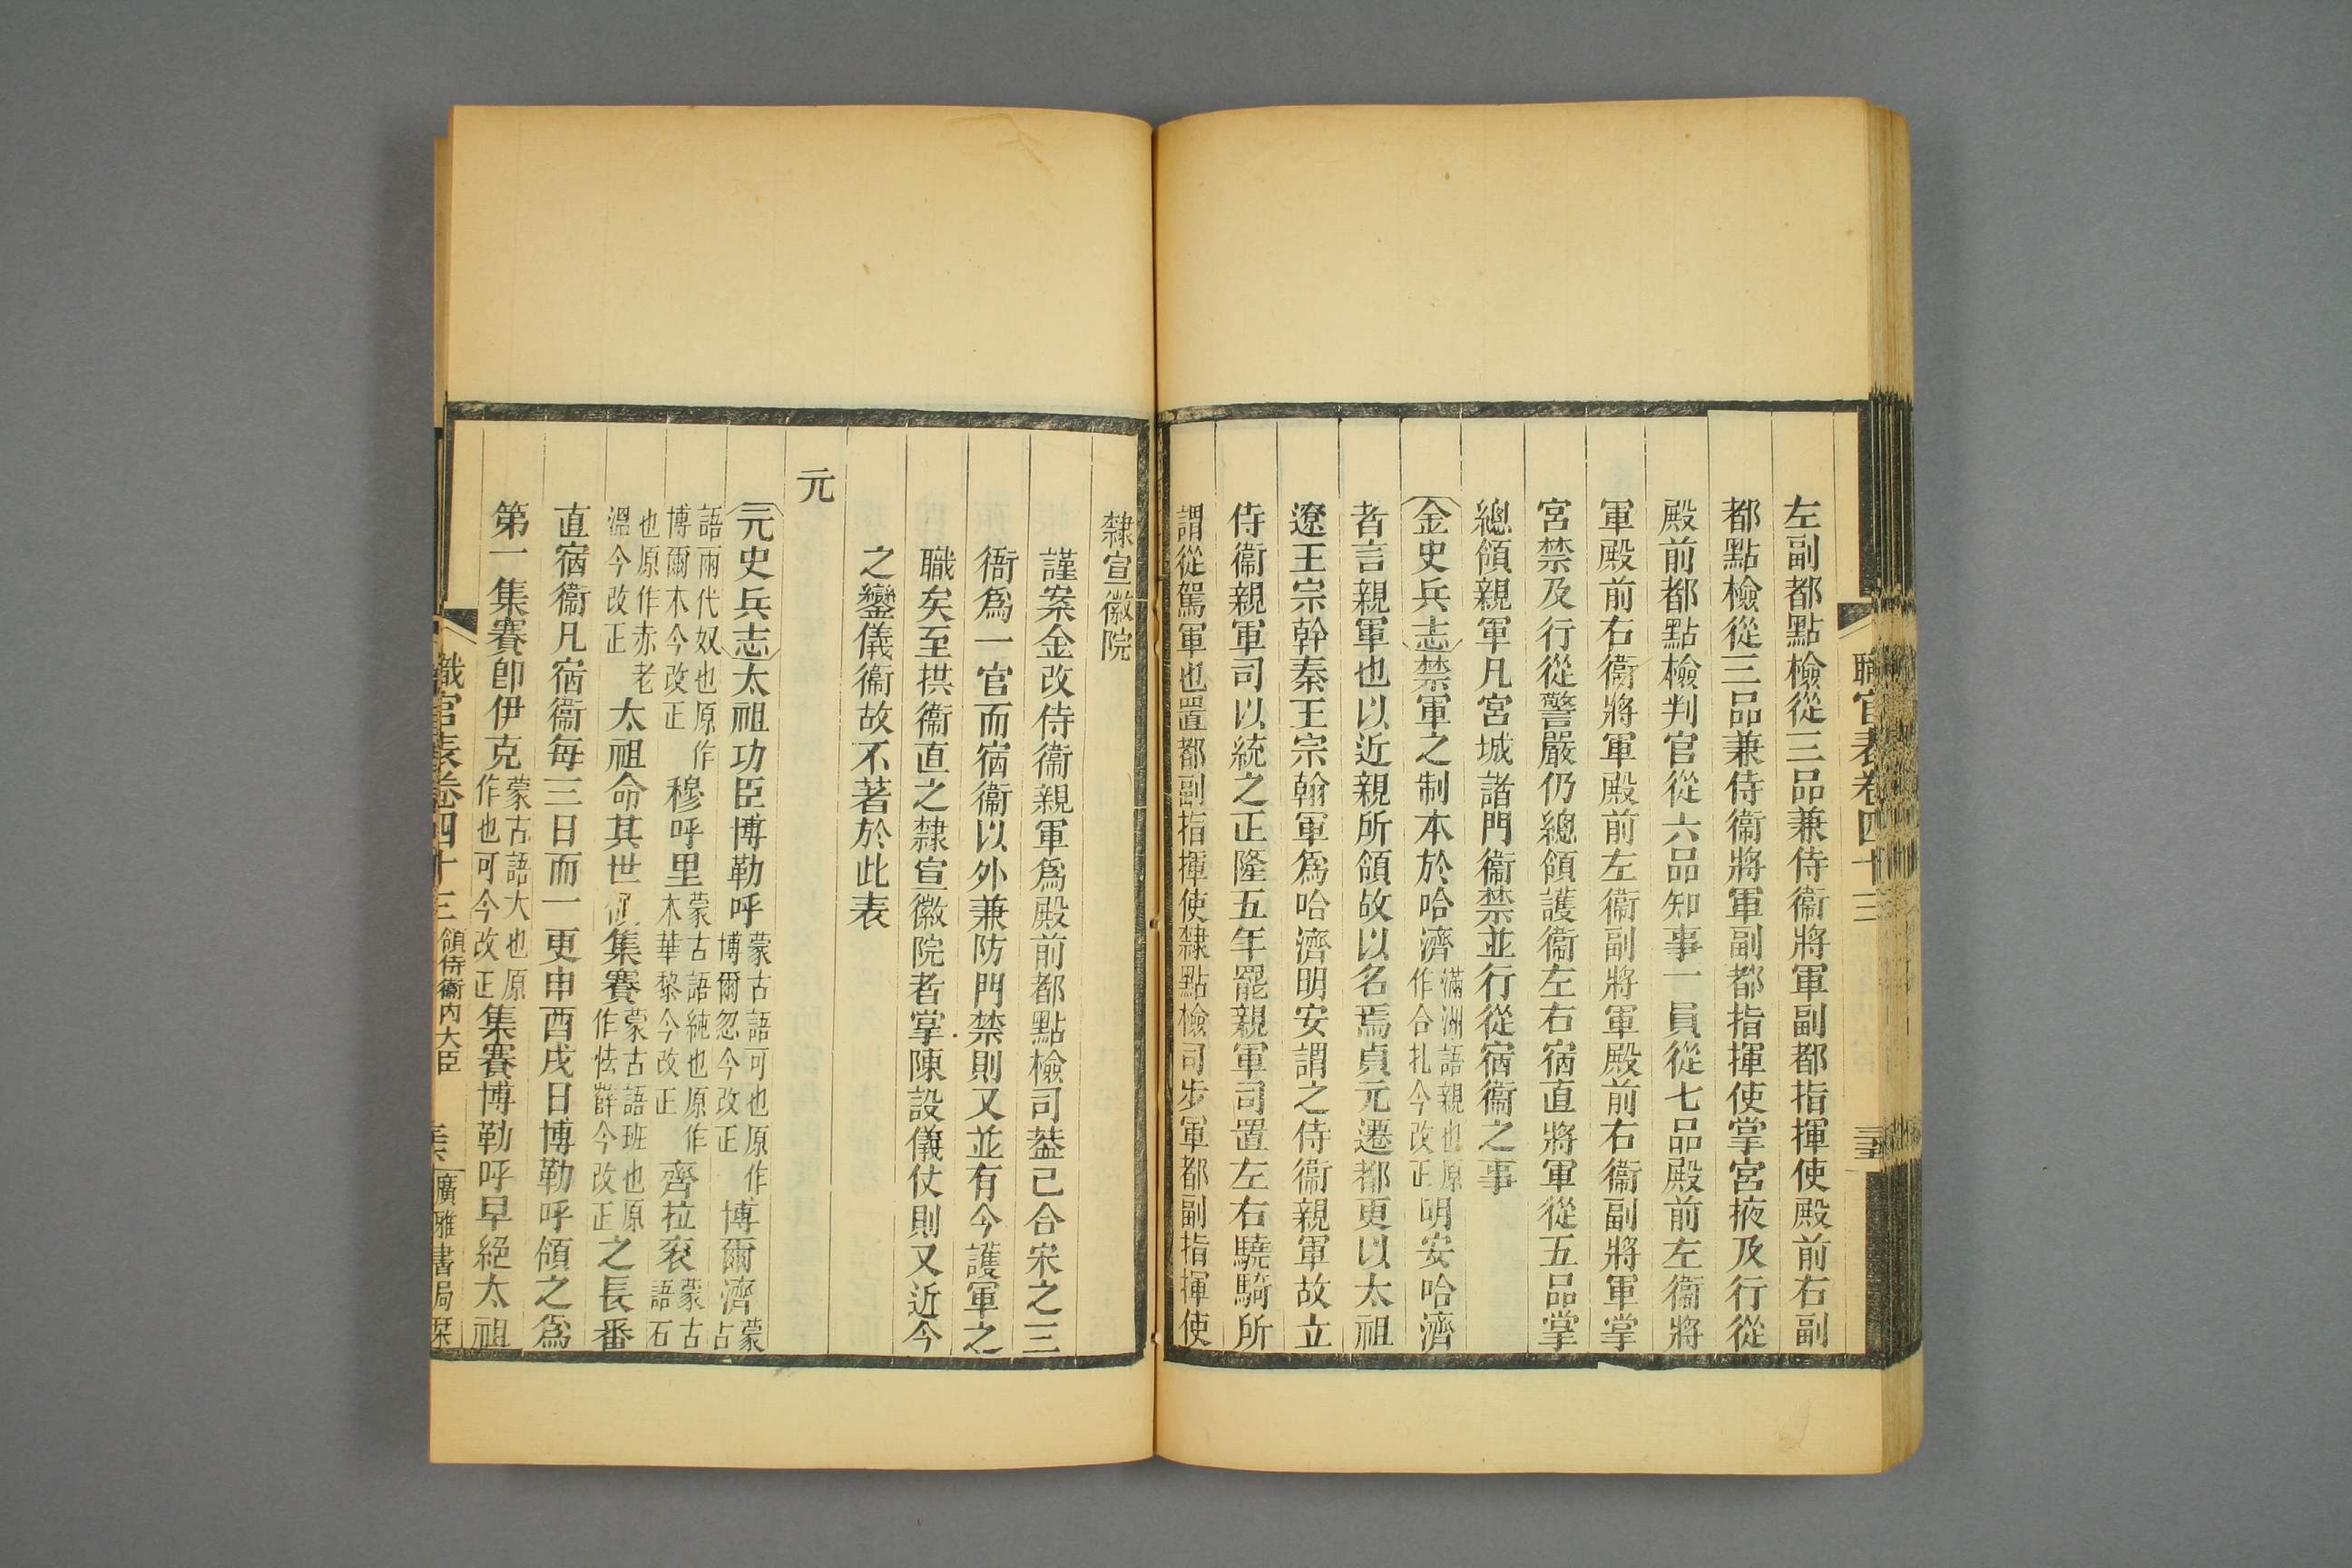 職官表卷四十三
左副都點檢從三品兼侍衞將軍副都指揮使殿前右副
都點檢從三品兼侍衞將軍副都指揮使掌宮掖及行從
殿前都點檢判官從六品知事一員從七品殿前左衞將
軍殿前右衞將軍殿前左衞副將軍殿前右衞副將軍掌
宮禁及行從警嚴仍總領護衞左右宿直將軍從五品掌
總領親軍凡宮城諸門衞禁並行從宿衞之事
金史兵志禁軍之制本於哈濟滿洲語親也原作合扎今改正明安哈濟
者言親軍也以近親所領故以名焉貞元遷都更以太祖
遼王宗幹秦王宗翰軍爲哈濟明安謂之侍衞親軍故立
侍衞親軍司以統之正隆五年罷親軍司置左右驍騎所
謂從駕軍也置都副指揮使隸點檢司步軍都副指揮使
隸宣徽院
謹案金改侍衞親軍爲殿前都點檢司葢已合宋之三
衙爲一官而宿衞以外兼防門禁則又並有今護軍之
職矣至拱衞直之隸宣徽院者掌陳設儀仗則又近今
之鑾儀衞故不著於此表
元
元史兵志太祖功臣博勒呼蒙古語可也原作博爾忽今改正博爾濟蒙古
語雨代奴也原作博爾木今改正穆呼里蒙古語純也原作木華黎今改正齊拉衮蒙古語石
也原作赤老溫今改正太祖命其世領集賽蒙古語班也原作怯薛今改正之長番
直宿衞凡宿衞每三日而一更申酉戌日博勒呼領之爲
第一集賽卽伊克蒙古語大也原作也可今改正集賽博勒呼早絕太祖
職官表卷四十三 領侍衞內大臣 廣雅書局栞